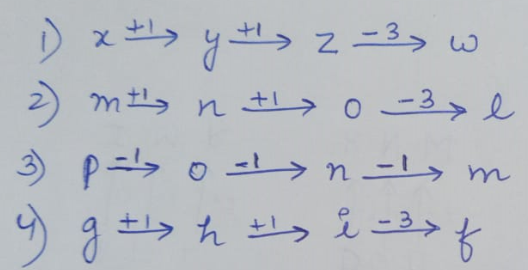 1) x +1→ y +1→ z -3→ w
2) m +1→ n +1→ o -3→ l
3) p -1→ o -1→ n -1→ m
4) g +1→ h +1→ i -3→ f